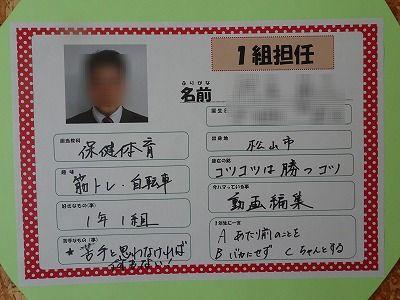 1組担任
ふりがな
名前
誕生日
担当教科
保健体育
出身地
松山市
趣味
筋トレ・自転車
座右の銘
コツコツは勝つコツ
好きなもの(事)
1年1組
今ハマっている事
動画編集
苦手なもの(事)
*苦手と思わなければ
1年生に一言
A あたり前のことを
B バカにせず C ちゃんとする